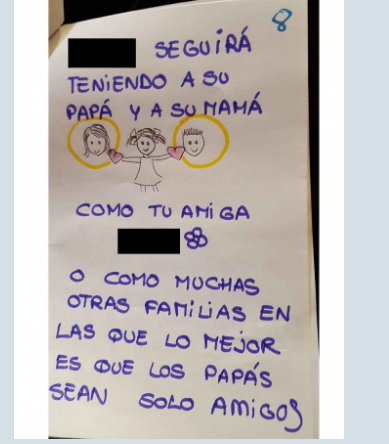 8
SEGUIRÁ
TENIENDO A SU
PAPÁ Y A SU MAMÁ
COMO TU AMIGA
O COMO MUCHAS
OTRAS FAMILIAS EN
LAS QUE LO MEJOR
ES QUE LOS PAPÁS
SEAN SOLO AMIGOS